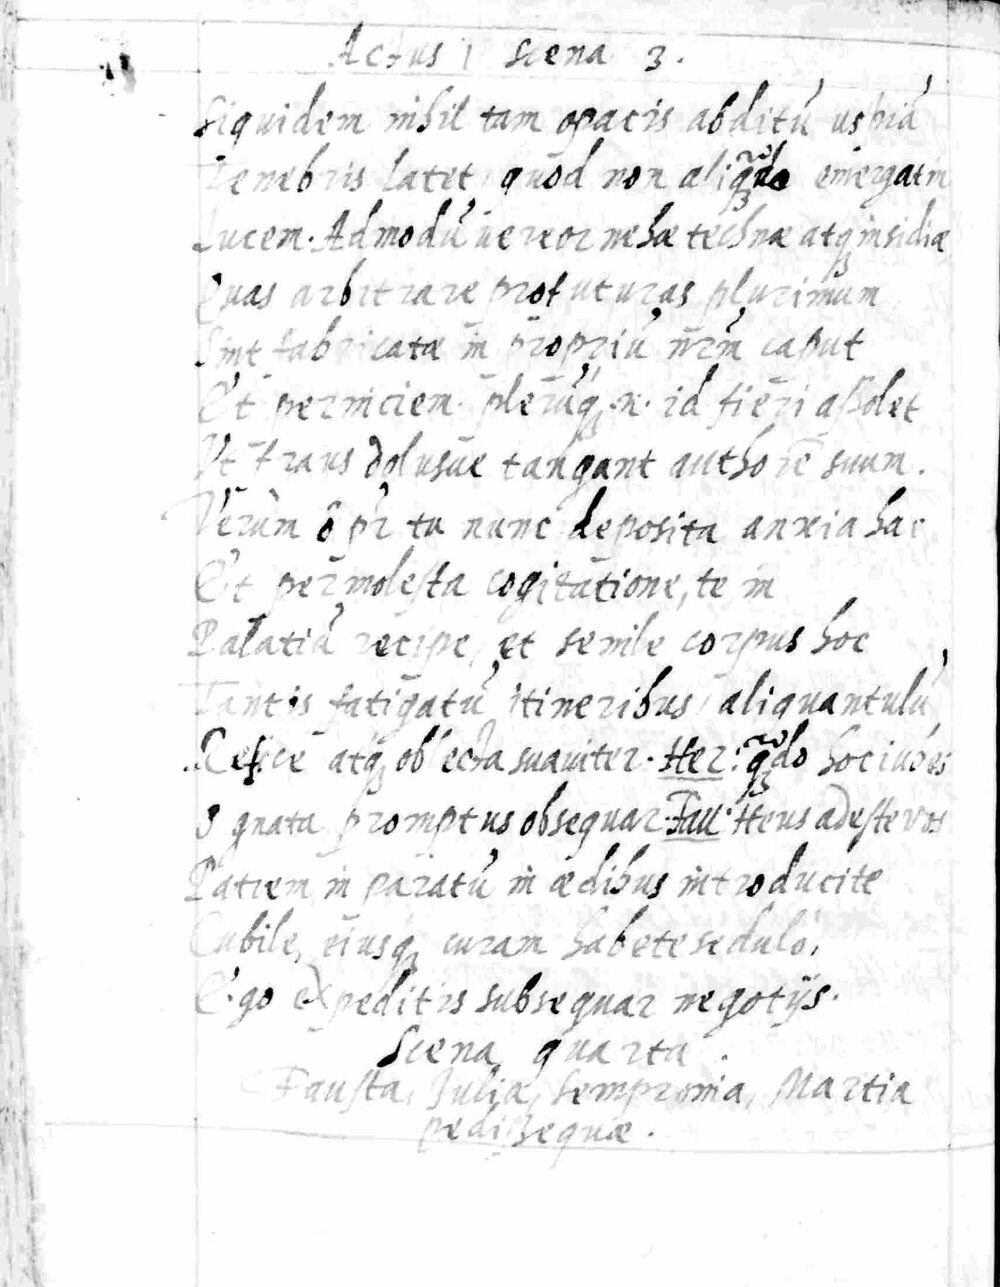 Actus 1 scena 3.
Siquidem nihil tam opacis abditū uspiā
Tenebris latet quod non aliqꝫdo emergat in
Lucem. Admodū uereor ne hæ technæ atqꝫ insidiæ
Quas arbitrare profuturas plurimum
Sint fabricatæ in propriū nr̄m caput
Et perniciem. plerūqꝫ .n. id fieri assolet
Vt fraus dolusue tangant authorē suum.
Verùm ô pr̄ tu nunc deposita anxia hac
Et permolesta cogitatione, te in
Palatiū recipe, et senile corpus hoc
Tantis fatigatū itineribus aliquantulū
Refice atqꝫ oblecta suauiter. Her: qꝫdo hoc iubes
O gnata promptus obsequar. Fau. Heus adeste vos
Patrem in paratū in ædibus introducite
Cubile, eiusqꝫ curam habete sedulò,
Ego expeditis subsequar negotijs.
Scena quarta.
Fausta, Julia, Sempronia, Martia
pedissequæ.